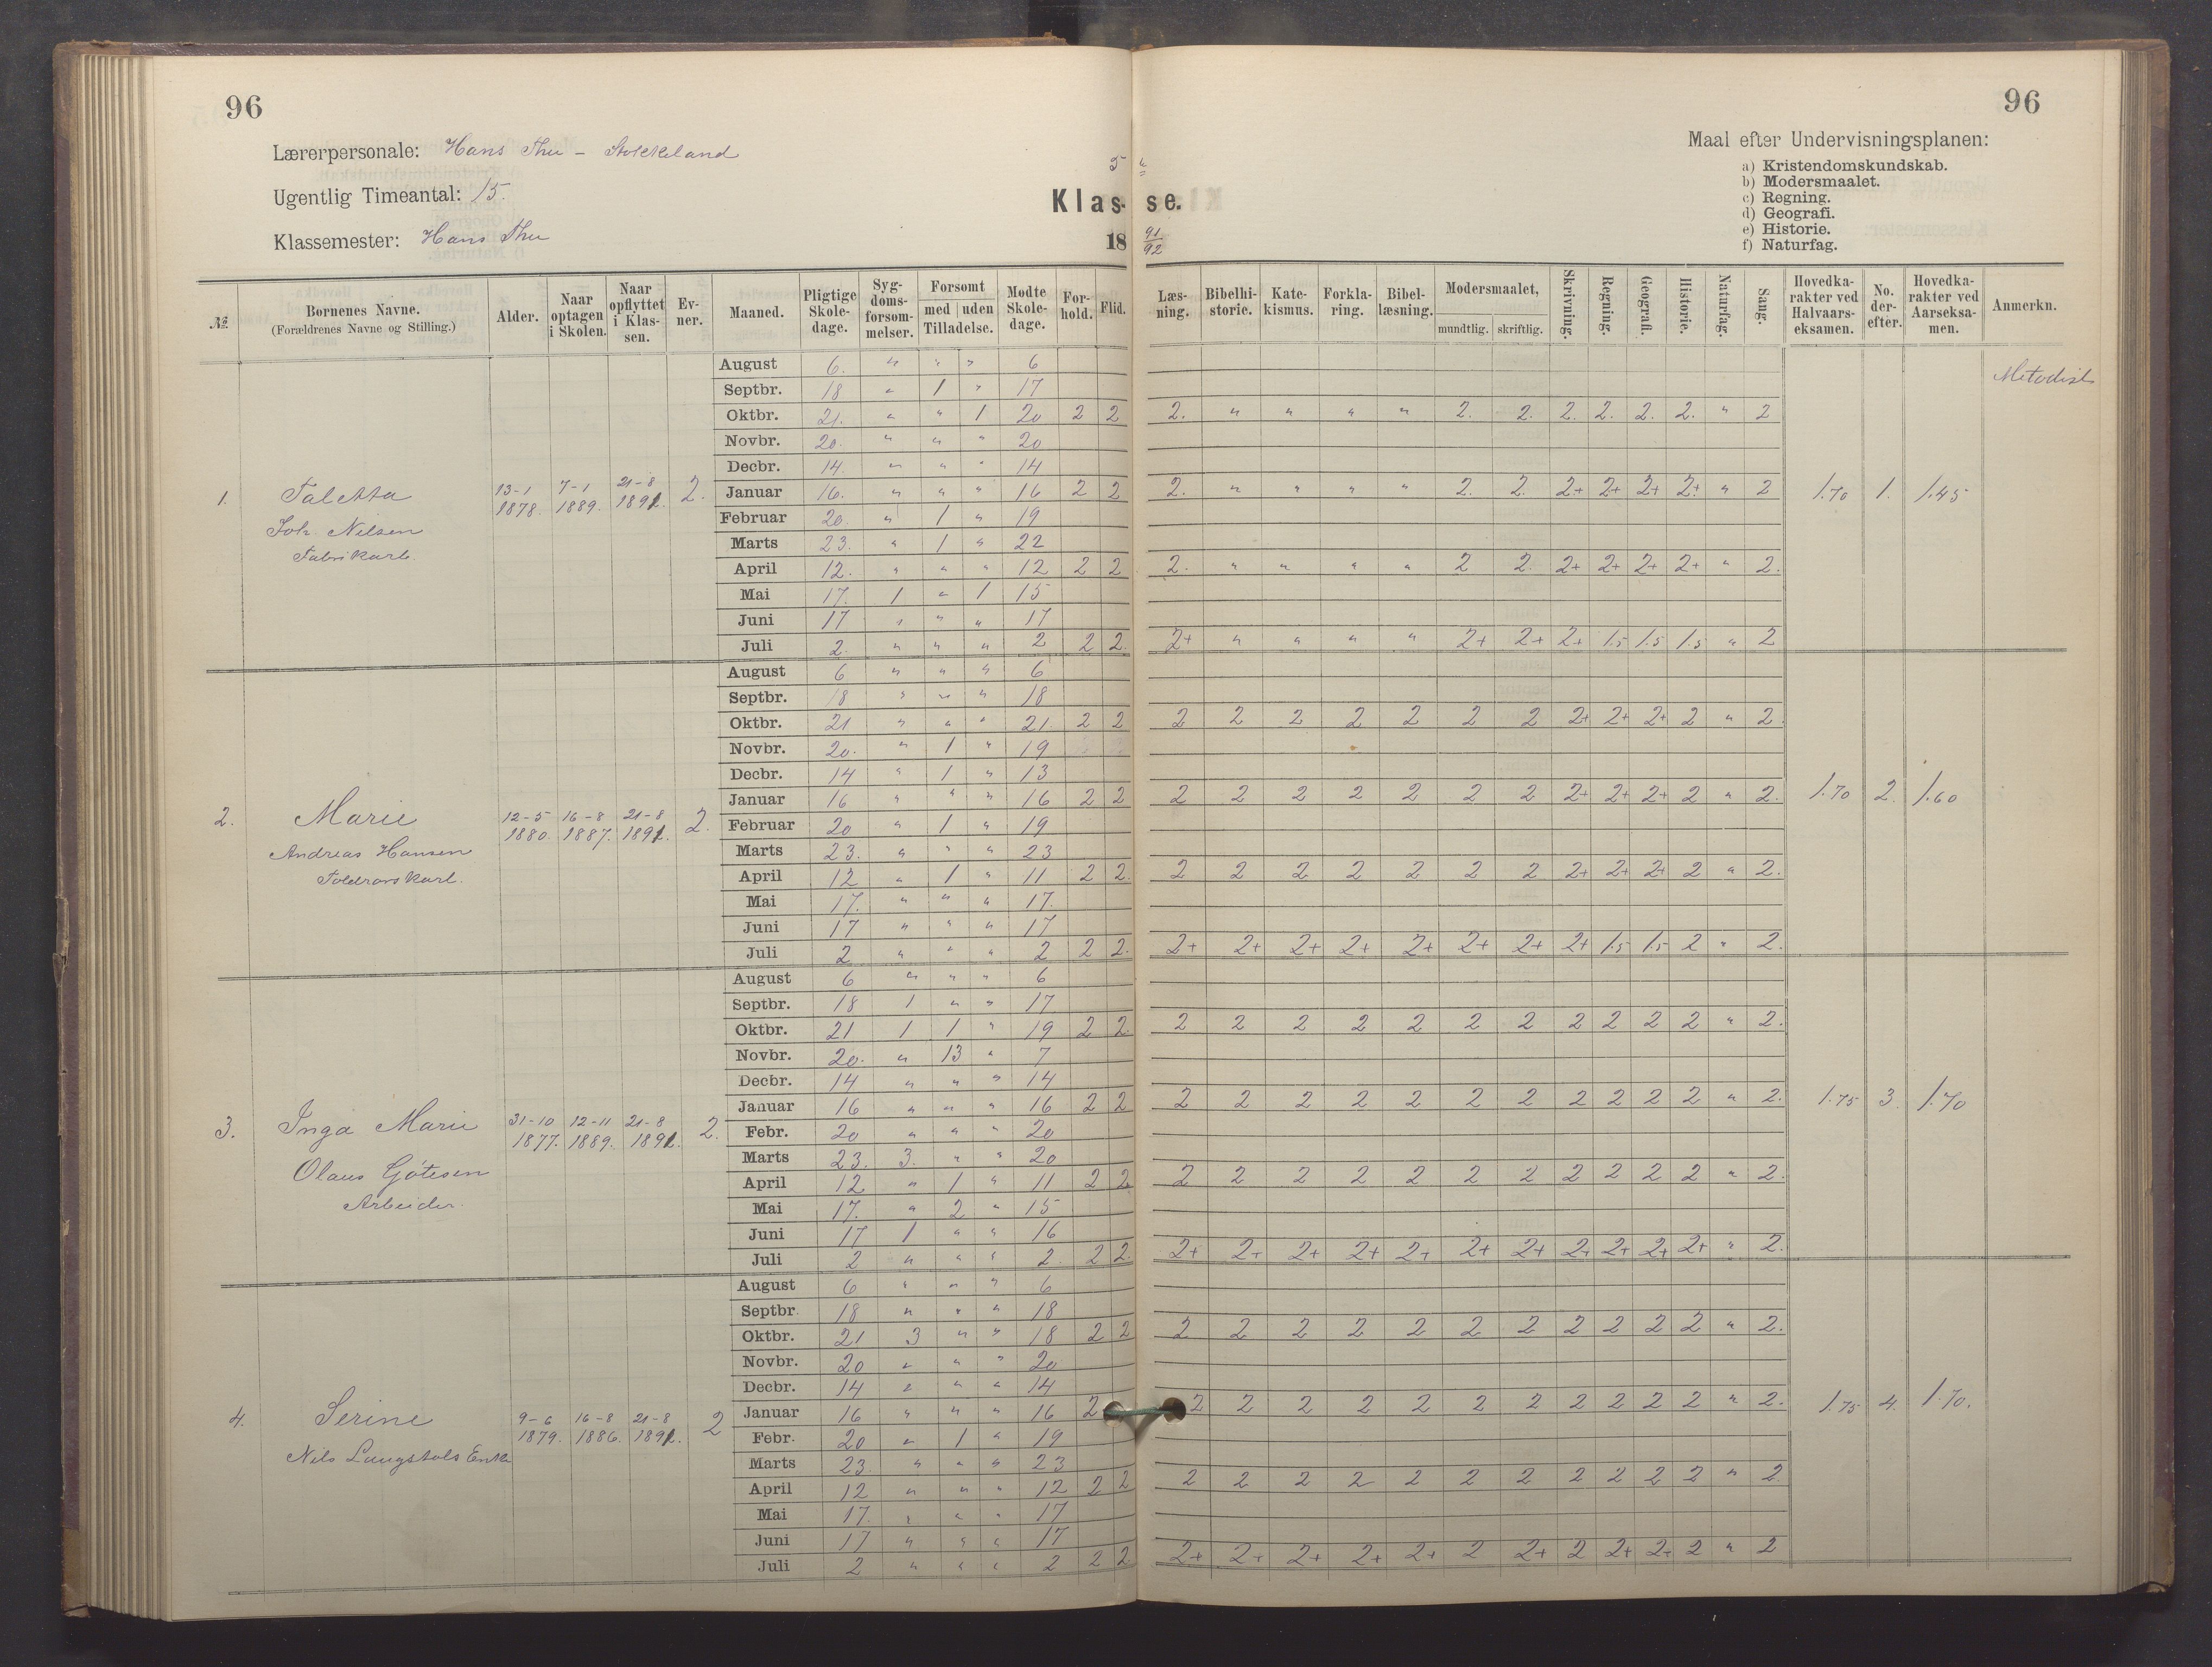 96
Lærerpersonale: Hans Thu – Stokkeland
Ugentlig Timeantal: 15.
Klassemester: Hans Thu
5 a
Klasse.
18 91/92
96
Maal efter Undervisningsplanen:
a) Kristendomskundskab.
b) Modersmaalet.
c) Regning.
d) Geografi.
e) Historie.
f) Naturfag.
№ | Børnenes Navne. (Forældrenes Navne og Stilling.) | Alder. | Naar optagen i Skolen. | Naar opflyttet i Klassen. | Evner. | Maaned. | Pligtige Skoledage. | Sygdomsforsømmelser. | Forsømt med / uden Tilladelse. | Mødte Skoledage. | Forhold. | Flid. | Læsning. | Bibelhistorie. | Katekismus. | Forklaring. | Bibellæsning. | Modersmaalet, mundtlig. / skriftlig. | Skrivning. | Regning. | Geografi. | Historie. | Naturfag. | Sang. | Hovedkarakter ved Halvaarseksamen. | No. derefter. | Hovedkarakter ved Aarseksamen. | Anmerkn.
1. Taletta
Joh. Nilsen
Fabrikarb.
13-1 1878. | 7-1 1889. | 21-8 1891. | 2.
August 6. " " " 6
Septbr. 18 " 1 " 17
Oktbr. 21. " " 1 20 2 2 | 2. " " " " 2. 2. 2. 2. 2. 2. " 2
Novbr. 20. " " " 20
Decbr. 14. " " " 14
Januar 16. " " " 16 2 2 | 2. " " " " 2. 2. 2+ 2+ 2+ 2+ " 2 | 1.70 | 1. | 1.45
Februar 20. " 1 " 19
Marts 23. " 1 " 22
April 12. " " " 12 2 2 | 2. " " " " 2 2. 2+ 2+ 2+ 2+ " 2.
Mai 17. 1 " 1 15
Juni 17 " " " 17
Juli 2. " " " 2 2 2. | 2+ " " " " 2+ 2+ 2+ 1.5 1.5 1.5 " 2
Metodist
2. Marie
Andreas Hansen
Toldrorskarl.
12-5 1880. | 16-8 1887. | 21-8 1891. | 2.
August 6 " " " 6
Septbr. 18 " " " 18
Oktbr. 21 " " " 21. 2 2 | 2 2 2 2 2 2 2 2+ 2+ 2+ 2 " 2.
Novbr. 20. " 1 " 19
Decbr. 14 " 1 " 13
Januar 16 " " " 16 2 2 | 2 2 2 2 2 2 2 2+ 2+ 2+ 2 " 2. | 1.70 | 2. | 1.60
Februar 20 " 1 " 19
Marts 23. " " " 23
April 12 " 1 " 11 2 2. | 2 2 2 2 2 2 2 2+ 2+ 2+ 2 " 2.
Mai 17. " " " 17.
Juni 17 " " " 17
Juli 2 " " " 2 2 2. | 2+ 2+ 2+ 2+ 2+ 2+ 2+ 2+ 1.5 1.5 2 " 2.
3. Inga Marie
Olaus Gjötesen
Arbeider.
31-10 1877. | 12-11 1889. | 21-8 1891. | 2.
August 6 " " " 6
Septbr. 18 1 " " 17
Oktbr. 21 1 1 " 19 2 2. | 2 2 2 2 2 2 2 2 2 2 2 " 2.
Novbr. 20. " 13 " 7
Decbr. 14 " " " 14
Januar 16 " " " 16 2 2 | 2 2 2 2 2 2 2 2 2 2 2 " 2. | 1.75 | 3. | 1.70
Febr. 20 " " " 20
Marts 23. 3. " " 20
April 12 " 1 " 11 2 2 | 2 2 2 2 2 2 2 2 2 2 2 " 2.
Mai 17. " 2 " 15
Juni 17 1 " " 16
Juli 2 " " " 2. 2 2. | 2+ 2+ 2+ 2+ 2+ 2+ 2+ 2+ 2+ 2+ 2+ " 2.
4. Serine
Nils Langstols Enke
9-6 1879. | 16-8 1886. | 21-8 1891. | 2
August 6 " " " 6
Septbr. 18 " " " 18
Oktbr. 21 3 " " 18 2 2 | 2 2 2 2 2 2 2 2 2 2 2 " 2.
Novbr. 20 " " " 20
Decbr. 14 " " " 14
Januar 16 " " " 16 2 | 2 2 2 2 2 2 2 2 2 2 2 " 2. | 1.75 | 4. | 1.70.
Febr. 20 " 1 " 19
Marts 23. " " " 23
April 12 " " " 12 2 2 | 2 2 2 2 2 2 2 2 2 2 2 " 2.
Mai 17. " " " 17
Juni 17 " " " 17
Juli 2 " " " 2 2 2 | 2+ 2+ 2+ 2+ 2+ 2 2+ 2 2+ 2+ 2 " 2